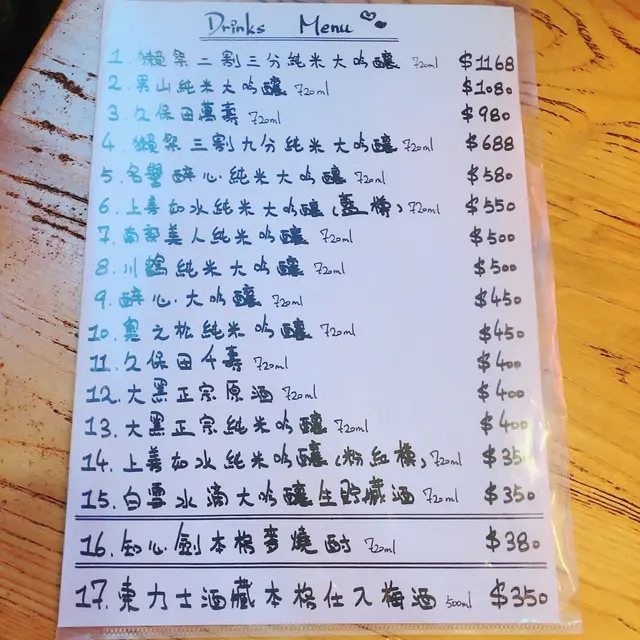 Drinks Menu
1. 獺祭二割三分純米大吟釀 720ml $1168
2. 男山純米大吟釀 720ml $1080
3. 久保田萬壽 720ml $980
4. 獺祭三割九分純米大吟釀 720ml $688
5. 名譽醉心純米大吟釀 720ml $580
6. 上善如水純米大吟釀(藍樽) 720ml $550
7. 南部美人純米吟釀 720ml $500
8. 川鶴純米大吟釀 720ml $500
9. 醉心大吟釀 720ml $450
10. 奧之松純米吟釀 720ml $450
11. 久保田千壽 720ml $400
12. 大黑正宗原酒 720ml $400
13. 大黑正宗純米吟釀 720ml $400
14. 上善如水純米吟釀(粉紅樽) 720ml $350
15. 白雪水滴大吟釀生貯藏酒 720ml $350
16. 知心劍本格麥燒酎 720ml $380
17. 東力士酒藏本格仕入梅酒 500ml $350